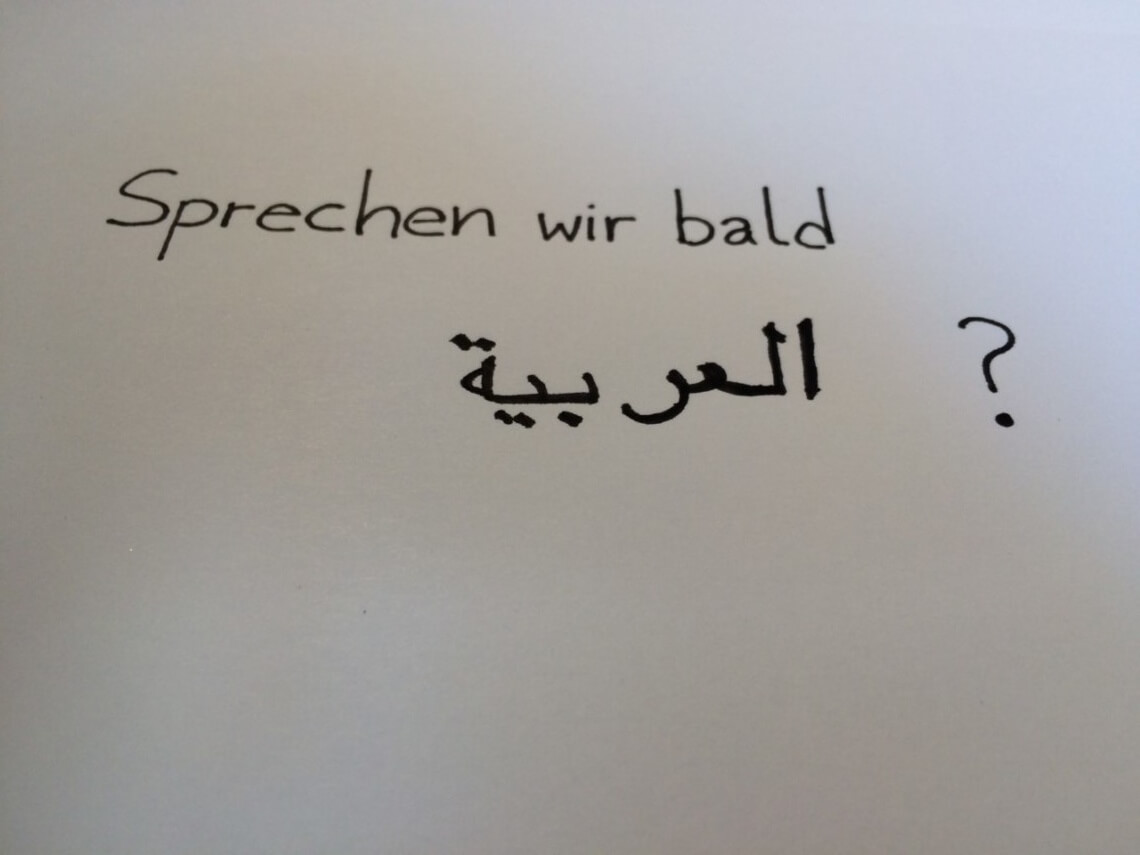 Sprechen wir bald
العربية ?